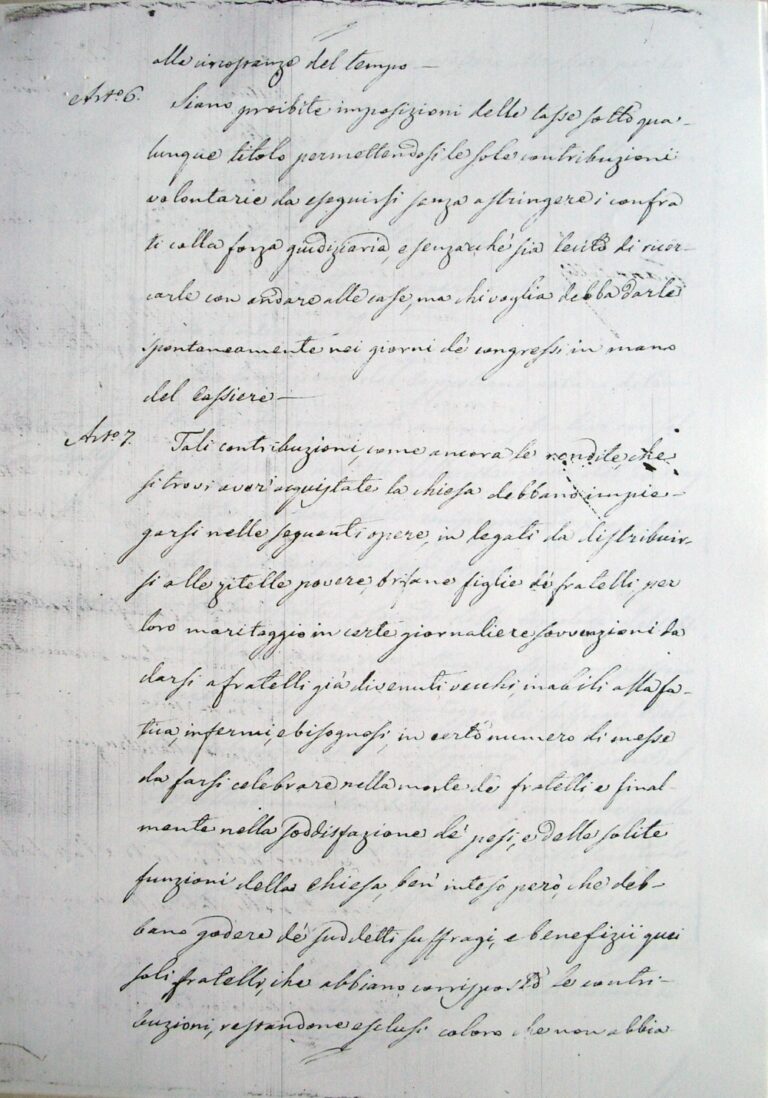 alle circostanze del tempo —
Arto. 6. Siano proibite imposizioni delle tasse sotto qua-
lunque titolo permettendosi le sole contribuzioni
volontarie da eseguirsi senza astringere i confra
ti colla forza giudiziaria, e senzacché sia lecito di ricer-
carle con andare alle case, ma chi voglia debba darle
spontaneamente nei giorni de' congressi in mano
del Cassiere —
Arto. 7. Tali contribuzioni, come ancora le rendite, che
si trovi aver acquistate la chiesa debbano impie-
garsi nelle seguenti opere, in legati da distribuir-
si alle zitelle povere, orfane figlie de' fratelli per
loro maritaggio in certe giornaliere sovvenzioni da
darsi a fratelli già divenuti vecchi, inabili alla fa-
tica, infermi, e bisognosi, in certo numero di messe
da farsi celebrare nella morte de' fratelli e final-
mente nella soddisfazione de' pesi, e delle solite
funzioni della chiesa, ben inteso però, che deb-
bano godere de' suddetti suffragi, e benefizii quei
soli fratelli, che abbiano corrisposto le contri-
buzioni, restandone esclusi coloro che non abbia